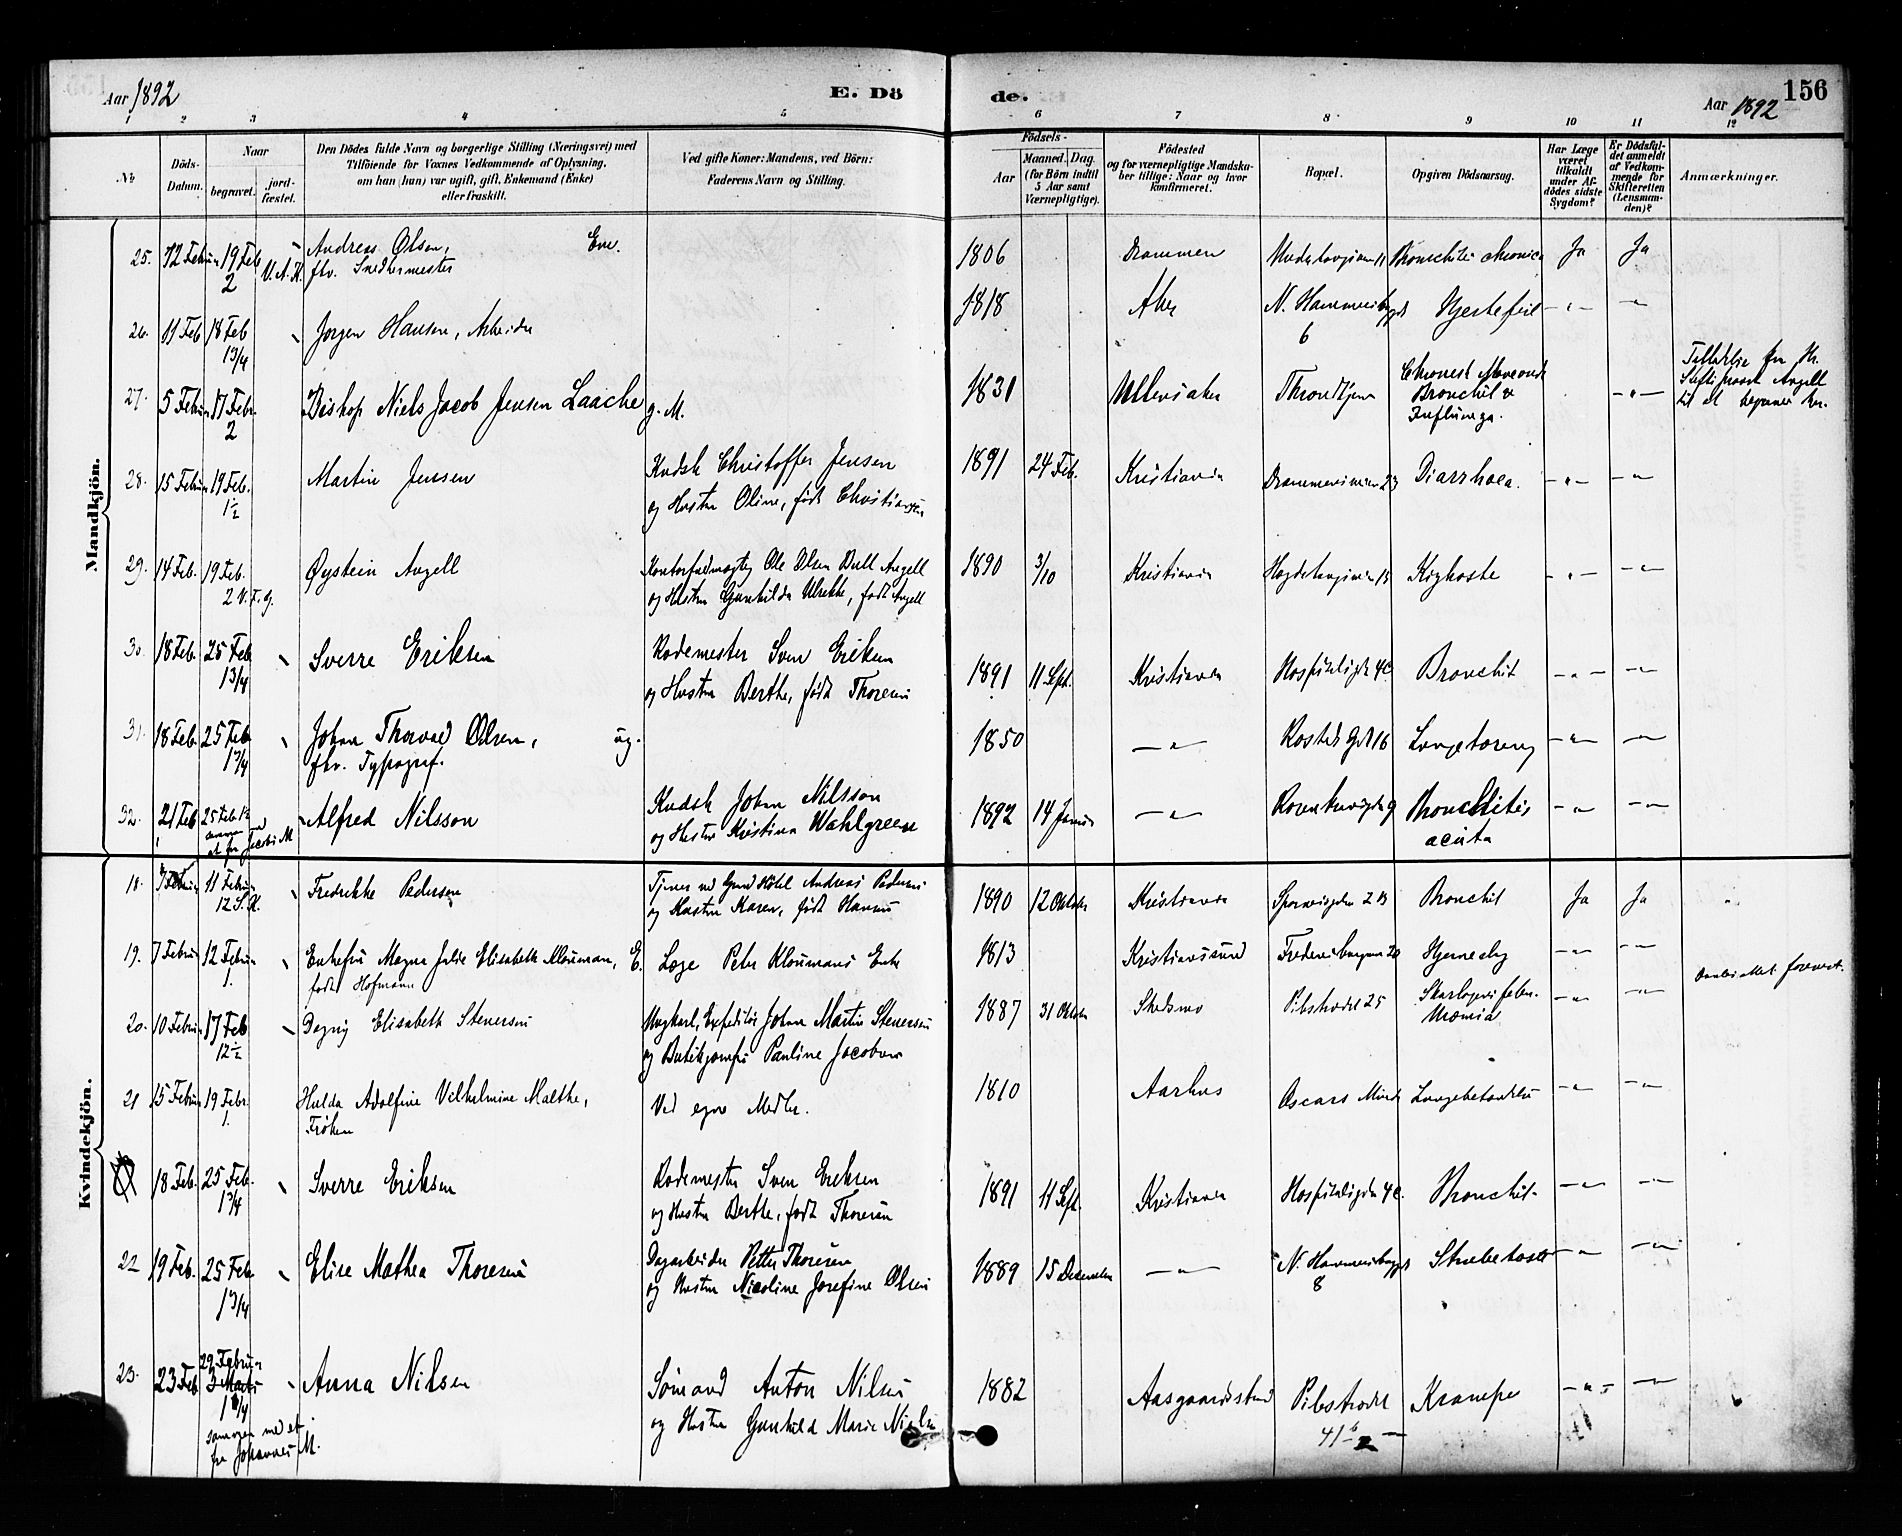 Aar 1892
E. Dö
de.
Aar 1892
156
1 2 3 4 5 6 7 8 9 10 11 12
No
Döds-
Datum.
Naar
begravet.
jord-
fæstet.
Den Dödes fulde Navn og borgerlige Stilling (Næringsvei) med
Tilföiende for Voxnes Vedkommende af Oplysning,
om han (hun) var ugift, gift, Enkemand (Enke)
eller fraskilt.
Ved gifte Koner: Mandens, ved Börn:
Faderens Navn og Stilling.
Födsels-
Aar
Maaned. Dag.
(for Börn indtil
5 Aar samt
Værnepligtige).
Födested
og for værnepligtige Mandska-
ber tillige: Naar og hvor
konfirmeret.
Bopæl.
Opgiven Dödsaarsag.
Har Læge
været
tilkaldt
under Af-
dödes sidste
Sygdom?
Er Dödsfal-
det anmeldt
af Vedkom-
mende for
Skifteretten
(Lensman-
den)?
Anmærkninger.
Mandkjön.
25. 12 Februar 19 Feb Andreas Olsen, Em. 1806 Drammen Bronchitis chronica Ja Ja
2 V. A. K. ftv. Snedkermester
26. 11 Feb 18 Feb Jørgen Hansen, Arbeider 1818 Aker N. Hammersborggd Hjertefeil – " – – " –
1 3/4 6
27. 5 Februar 17 Febr. Biskop Niels Jacob Jensen Laache g. M. 1831 Ullensaker Throndhjem Bronchit & – " –
2 Influenza.
28. 15 Februar 19 Feb. Martin Jensen Kudsk Christoffer Jensen 1891 24 Feb. Kristiania Drammensveien 23 Diarrhoea. – " – – " –
1 ½ og Hustru Oline, født Christiansen
29. 14 Feb. 19 Feb. Øystein Angell Kontorfuldmægtig Ole Olsen Bull Angell 1890 3/10 Kristiania Kighoste – " – – " –
2 V. F. G. og Hustru Gunhilda Ulrikke, født Angell
30. 18 Feb. 25 Feb Sverre Eriksen Rodemester Sven Eriksen 1891 11 Sept. Kristiania Hospitalsgd 4c Bronchit – " – – " –
1 3/4 og Hustru Berthe, født Thoresen
31. 18 Feb. 25 Feb Johan Thorvald Olsen, ug. 1850 – " – Rosteds Gd 16 Lungetæring – " – – " –
1 3/4 ftv. Typograf.
32. 21 Feb 25 Feb 1½ Alfred Nilsson Kudsk Johan Nilsson 1892 14 Januar – " – Rosenkransgden 9 Bronchitis – " – – " –
Jacobi M og Hustru Kristina Wahlgreen acuta
Kvindekjön.
18. 7 Februar 11 Februar Fredrikke Pedersen Tjener ved Grand Hôtel Andreas Pedersen 1890 12 Oktober Kristiania Bronchit Ja Ja
12 S. K. og Hustru Karen, født Hansen
19. 7 Februar 12 Februar Enkefru Magna Julie Elisabeth Kloumann, E. Læge Peter Kloumans Enke 1813 Kristianssund Hjerneslag – " – – " –
1. født Hofmann
20. 10 Februar 17 Feb Dagny Elisabeth Stenersen Ungkarl, Expeditør Johan Martin Stenersen 1887 31 Oktober Skedsmo Pilestrædet 25 Skarlagensfeber. – " – – " –
12 ½ og Butikjomfru Pauline Jacobsen Uræmia
21 15 Februar 19 Febr. Hulda Adolfine Vilhelmine Malthe, Ved egne Midler. 1810 Aarhus Oscars Minde Lungebetændelse – " – – " –
1. Frøken
18 Feb. 25 Feb. Sverre Eriksen Rodemester Sven Eriksen 1891 11 Sept. Kristiania Hospitalsgden 4c. Bronchit. – " – – " –
1 3/4 og Hustru Berthe, født Thoresen
22 19 Feb. 25 Feb Elise Mathea Thoresen Dagarbeider Petter Thoresen 1889 15 December – " – N. Hammersborggd Strubehoste – " – – " –
1 3/4 og Hustru Nicoline Josefine Olsen 8
23. 23 Feb 29 Februar Anna Nilsen Sømand Anton Nilsen 1882 Aasgaardstrand Pilestrædet Krampe – " – – " –
3 Marts
1 3/4 og Hustru Gunhild Marie Nielsen 41
sammen med et
fra Johannes M.